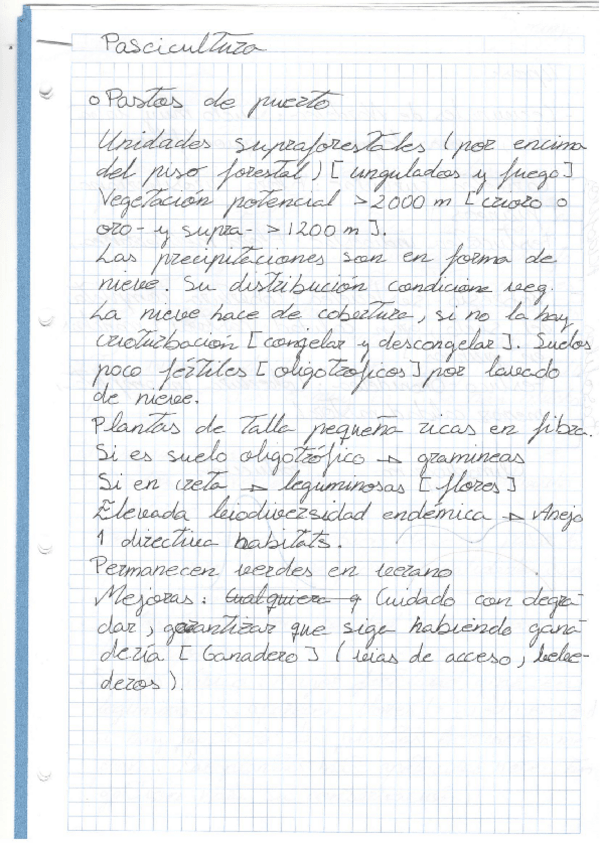 Pascicultura
o Pastos de puerto
Unidades supraforestales (por encima
del piso forestal) [ungulados y fuego]
Vegetación potencial >2000 m [crioro o
oro- y supra- >1200 m].
Las precipitaciones son en forma de
nieve. Su distribución condiciona veg.
La nieve hace de cobertura, si no la hay
crioturbación [congelar y descongelar]. Suelos
poco fértiles [oligotróficos] por lavado
de nieve.
Plantas de talla pequeña ricas en fibra.
Si es suelo oligotrófico → gramineas
Si en creta → leguminosas [flores]
Elevada biodiversidad endémica → Anejo
1 directiva habitats.
Permanecen verdes en verano
Mejoras: Cualquiera q Cuidado con degra-
dar, garantizar que siga habiendo gana-
dería [Ganadero] (vias de acceso, bebe-
deros)